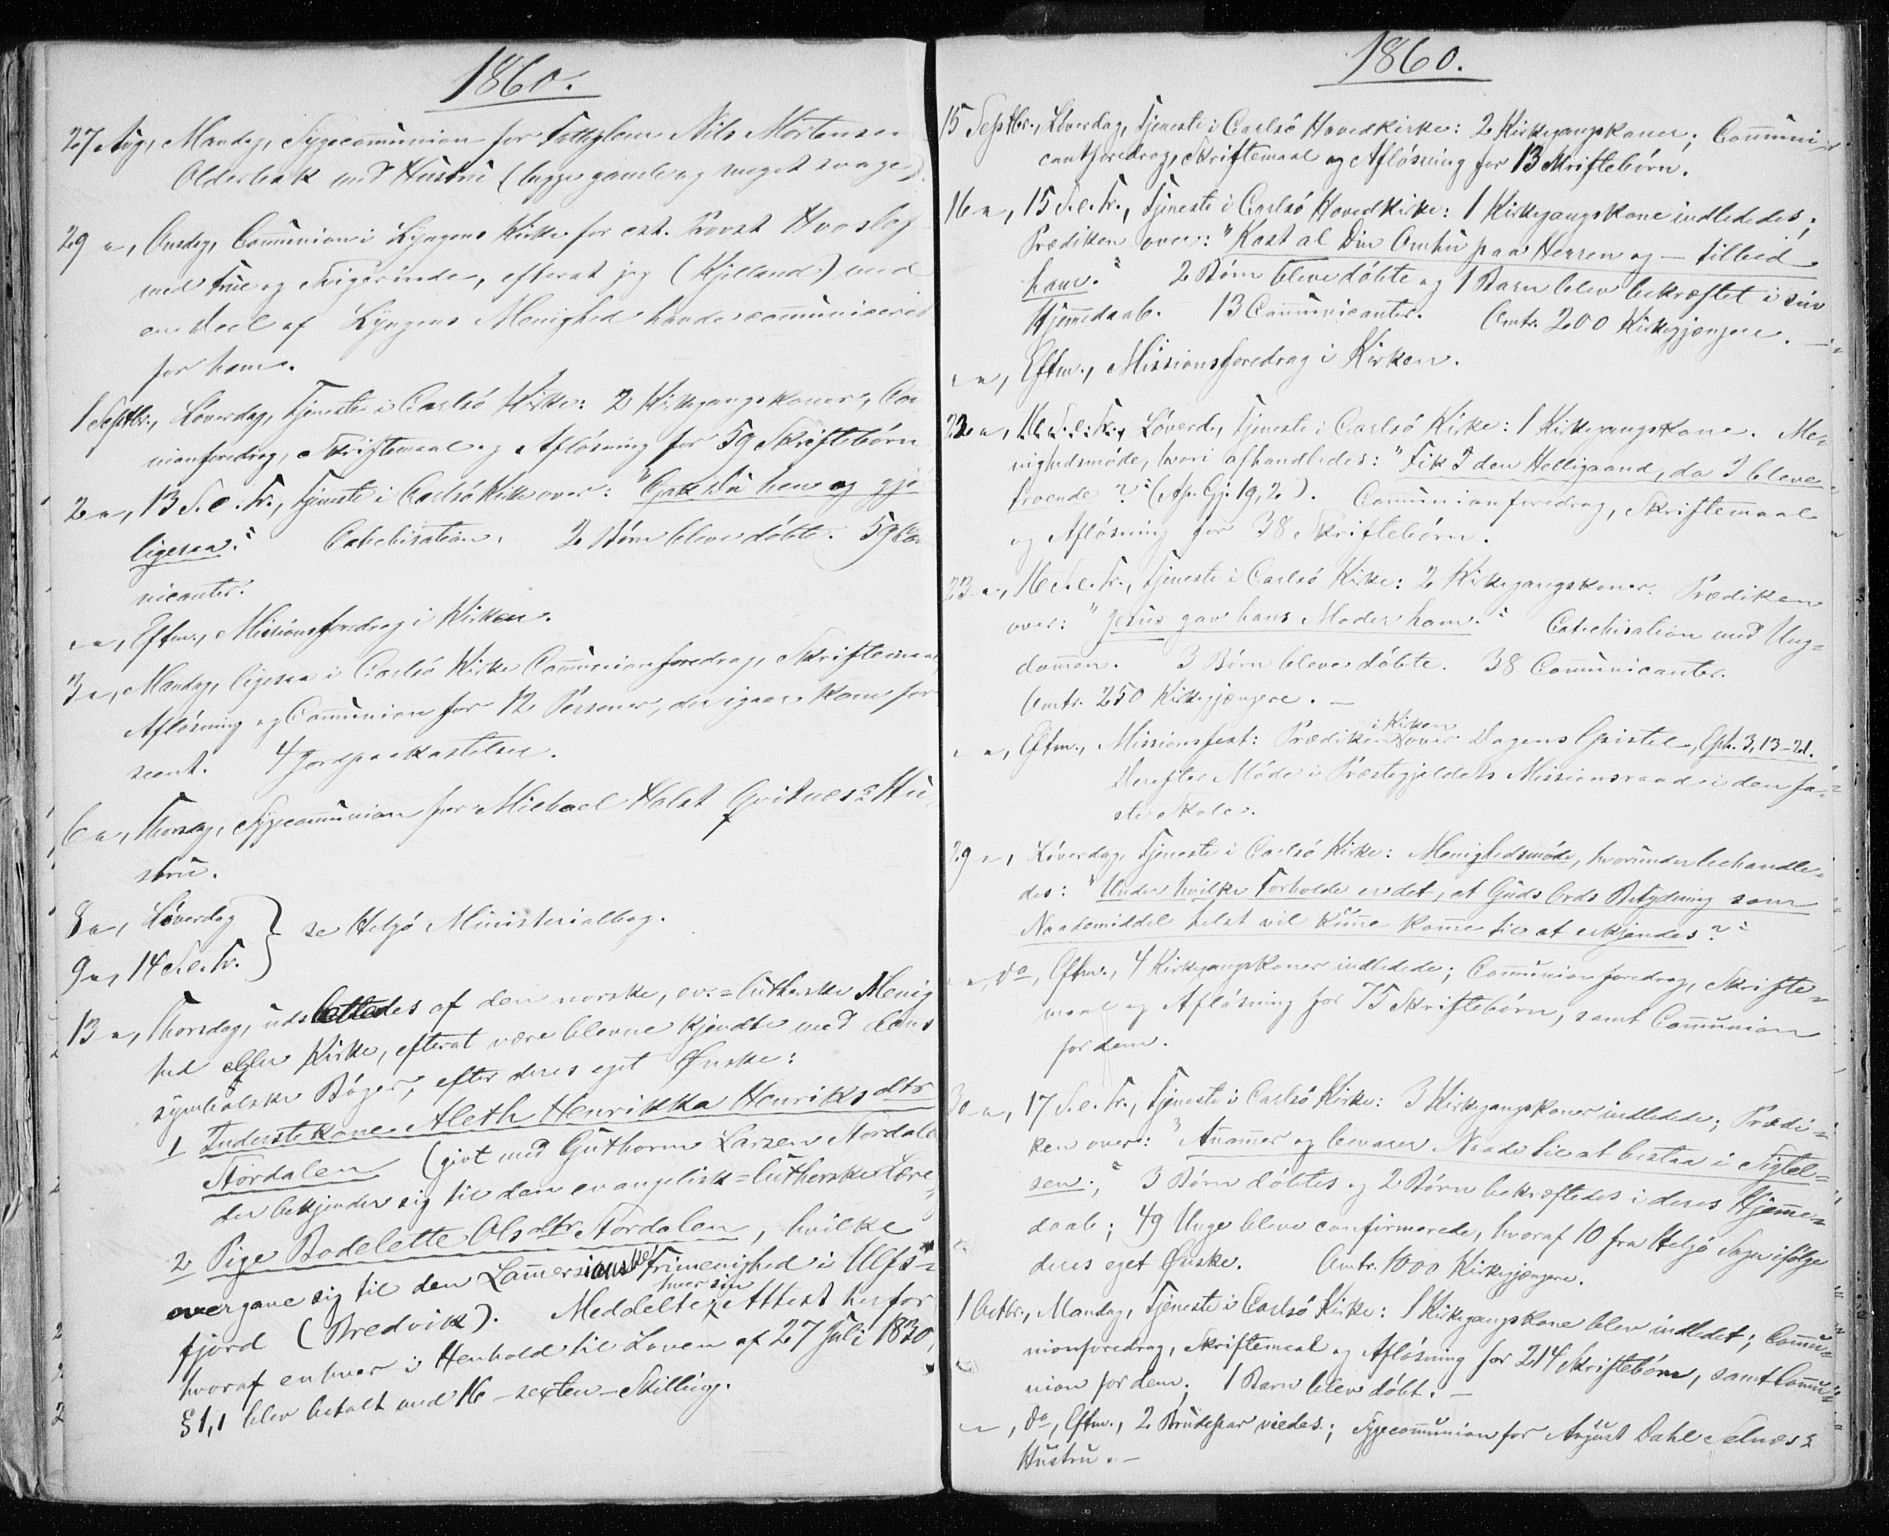 1860.
27 Aug, Mandag, Sygecomunion for Nils Mortensen
Olderbak med Hustru (begge gamle og meget svage).
29 ", Onsdag, Comunion i Lyngens Kirke for cst. Provst Hvoslef
med Frue og Svigerinde, efterat jeg (Kjelland) med
en Deel af Lyngens Menighed havde comuniceret
for ham.
1 Septbr., Løverdag, Tjeneste i Carlsö Kirke: 2 Kirkegangskoner, Com
nionforedrag, Skriftemaal og Aflösning for 59 Skriftebörn
2 ", 13 S. e. Tr., Tjeneste i Carlsö Kirke over: "Gak Du hen og gjö
ligesaa." Catechisation. 2 Börn bleve döbte. 59 Co
nicanter.
" ", Eftm., Missionsforedrag i Kirken.
3 ", Mandag, ligesaa i Carlsö Kirke Comunionforedrag, Skriftemaal,
Aflösning og Comunion for 12 Personer, der igaar kom for
seent. 4 Jordpaakastelser.
6 ", Thorsdag, Sygecomunion for Michael Holst Qvitnæs's Hu-
stru.
8 ", Løverdag
9 ", 14 S. e. Tr. } se Helgö Ministerialbog.
13 ", Thorsdag, udslettedes af den norske, ev.=lutherske Menig
hed eller Kirke, efterat være blevne kjendte med dens
symbolske Böger, efter deres eget Ønske:
1 Inderstekone Aleth Henrikka Henriksdtr
Stordalen (givt med Guthorm Larsen Stordalen
der bekjender sig til den evangelisk=lutherske Lære,
2 Pige Bodelette Olsdtr Stordalen, hvilke
overgave sig til den Lamersianske Frimenighed i Ulfs=
fjord (Bredvik). Meddeltes hver sin Attest herfor
hvoraf enhver i Henhold til Loven af 27 Juli 1830,
§ 1,1 blev betalt med 16 - sexten - Skilling.
1860.
15 Septbr., Løverdag, Tjeneste i Carlsö Hovedkirke: 2 Kirkegangskoner; Comuni-
cantforedrag, Skriftemaal og Aflösning for 13 Skriftebörn.
16 ", 15 S. e. Tr., Tjeneste i Carlsö Hovedkirke: 1 Kirkegangskone indlededes;
Prædiken over: "Kast al Din Omhu paa Herren og - tilbed
ham." 2 Börn bleve döbte og 1 Barn blev bekræftet i sin
Hjemedaab. 13 Comunicanter. Omtr. 200 Kirkegjængere. -
" ", Eftm., Missionsforedrag i Kirken.
22 ", Løverd., Tjeneste i Carlsö Kirke: 1 Kirkegangskone. Me-
nighedsmöde, hvori afhandledes: "Fik I den Helligaand, da I bleve
troende?" (Ap. Gj. 19, 2). Comunionforedrag, Skriftemaal
og Aflösning for 38 Skriftebörn.
23 ", 16 S. e. Tr., Tjeneste i Carlsö Kirke: 2 Kirkegangskoner. Prædiken
over: "Jesus gav hans Moder ham." Catechisation med Ung-
domen. 3 Börn bleve döbte. 38 Comunicanter.
Omtr. 250 Kirkegjængere. -
" ", Eftm., Missionsfest: Prædiken i Kirken over Dagens Epistel, Eph. 3, 13-21.
Derefter Möde i Præstegjeldets Missionsraad i den fa-
ste Skole.
29 ", Løverdag, Tjeneste i Carlsö Kirke: Menighedsmöde, hvorunder behandle-
des: "Under hvilke Forholde er det, at Guds Ords Betydning som
Naademiddel helst vil kune kome til at erkjendes?"
" ", do, Eftm., 4 Kirkegangskoner indledede; Comunionforedrag, Skrifte=
maal og Aflösning for 75 Skriftebörn, samt Comunion
for dem.
30 ", 17 S. e. Tr., Tjeneste i Carlsö Kirke: 3 Kirkegangskoner indledede; Prædi-
ken over: "Anamer og bevarer Naade til at bestaa i Sigtel-
sen." 3 Börn döbtes og 2 Börn bekræftedes i deres Hjeme=
daab; 49 Unge bleve confirmerede, hvoraf 10 fra Helgö Sogn ifölge
deres eget Ønske. Omtr. 1000 Kirkegjængere.
1 Octbr., Mandag, Tjeneste i Carlsö Kirke: 1 Kirkegangskone blev indledet; Comu=
nionforedrag, Skriftemaal og Aflösning for 214 Skriftebörn, samt Comu-
nion for dem; 1 Barn blev döbt. -
" ", do, Eftm., 2 Brudepar viedes; Sygecomunion for August Dahl Selnæs's
Hustru. -